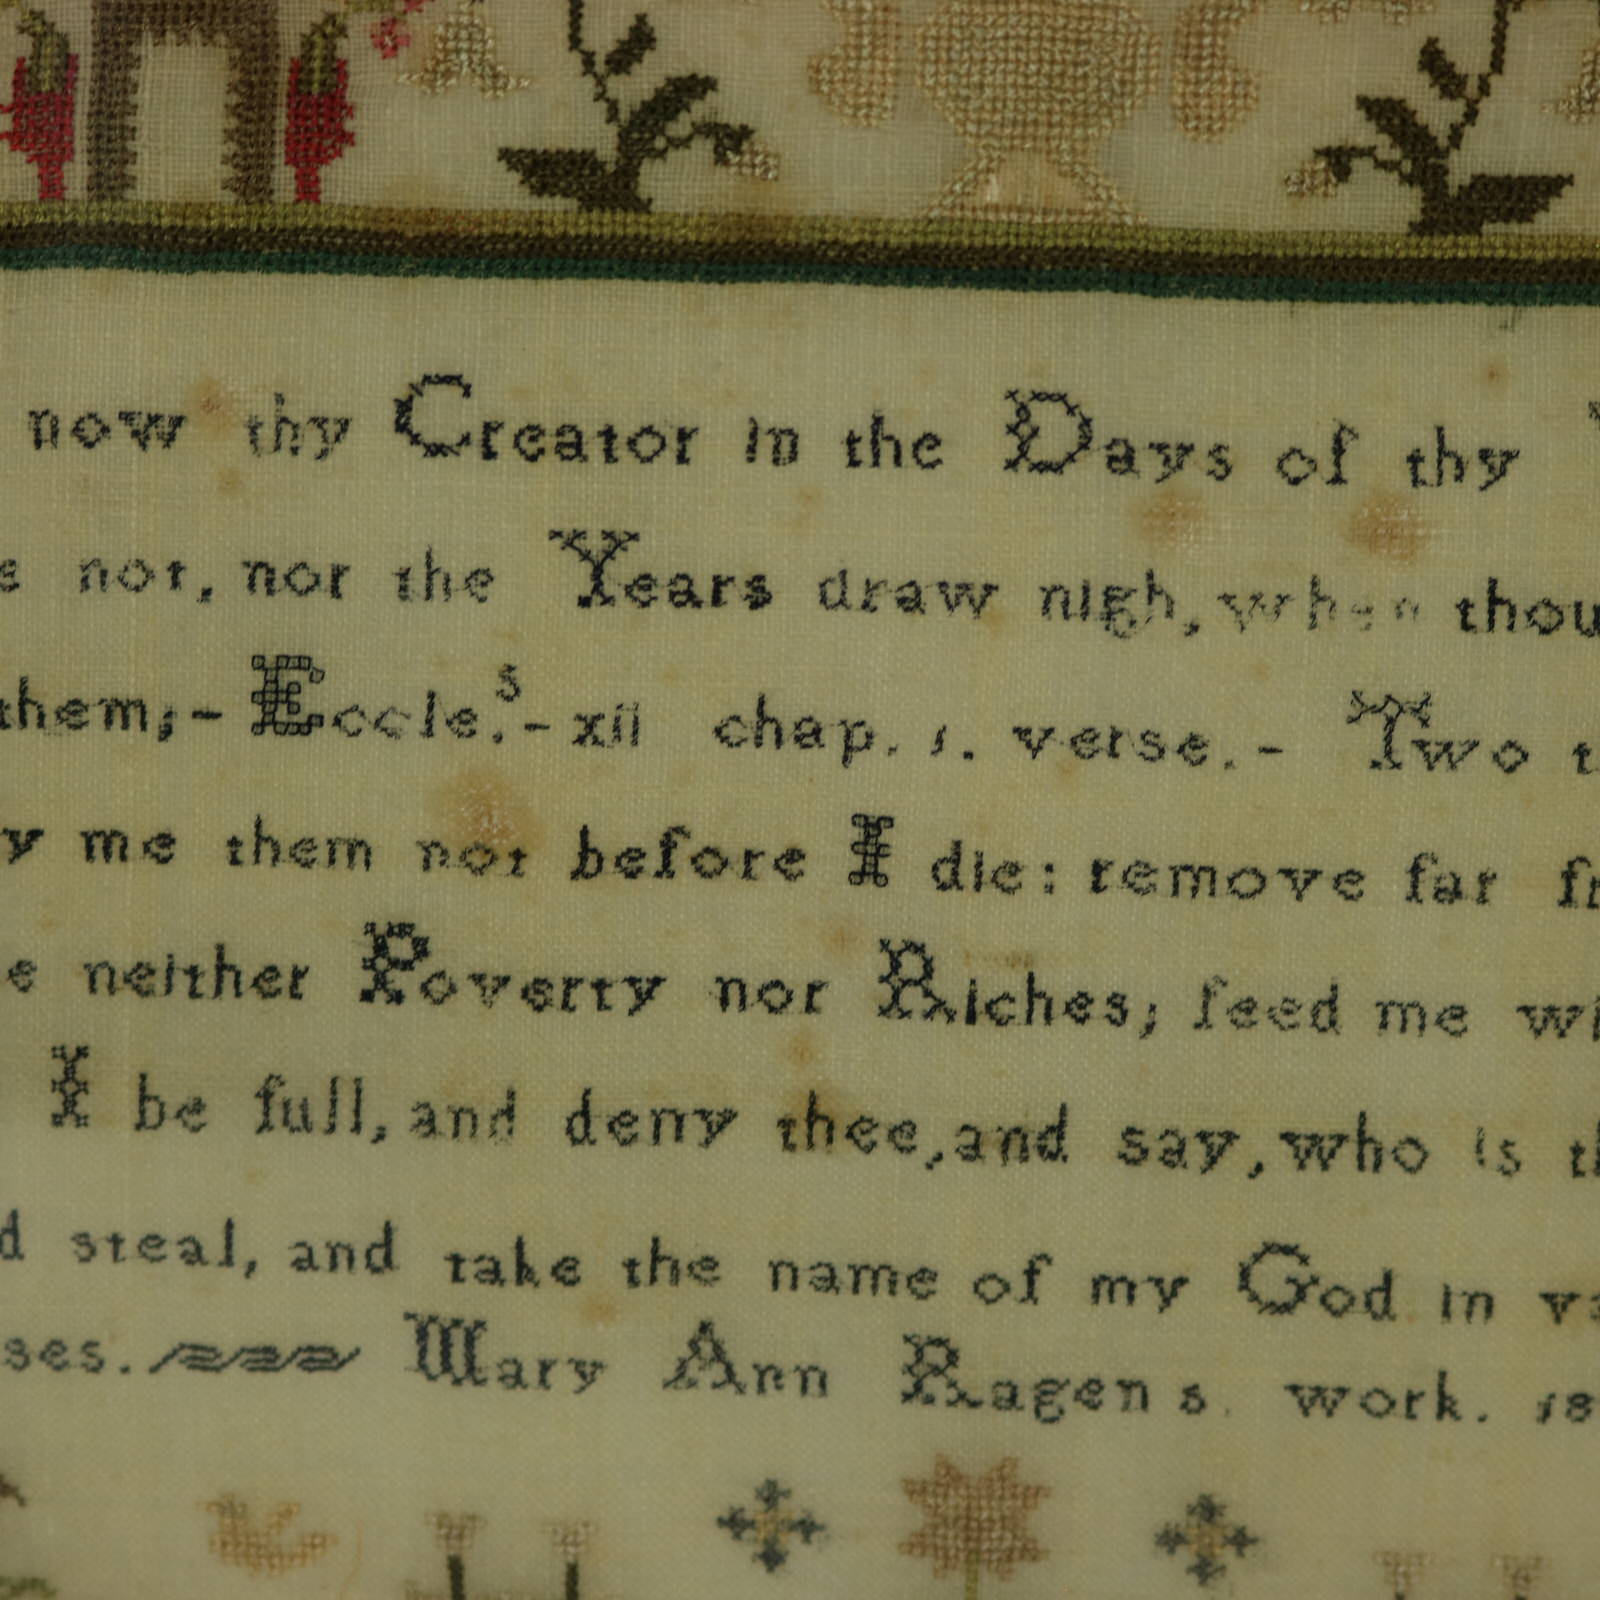 now thy Creator in the Days of thy
e not, nor the Years draw nigh, when thou
them;- Eccle.s- xii chap. 1. verse.- Two t
y me them not before I die: remove far fr
e neither Poverty nor Riches; feed me wi
I be full, and deny thee, and say, who is th
d steal, and take the name of my God in va
ses. Mary Ann Ragens. work. 18